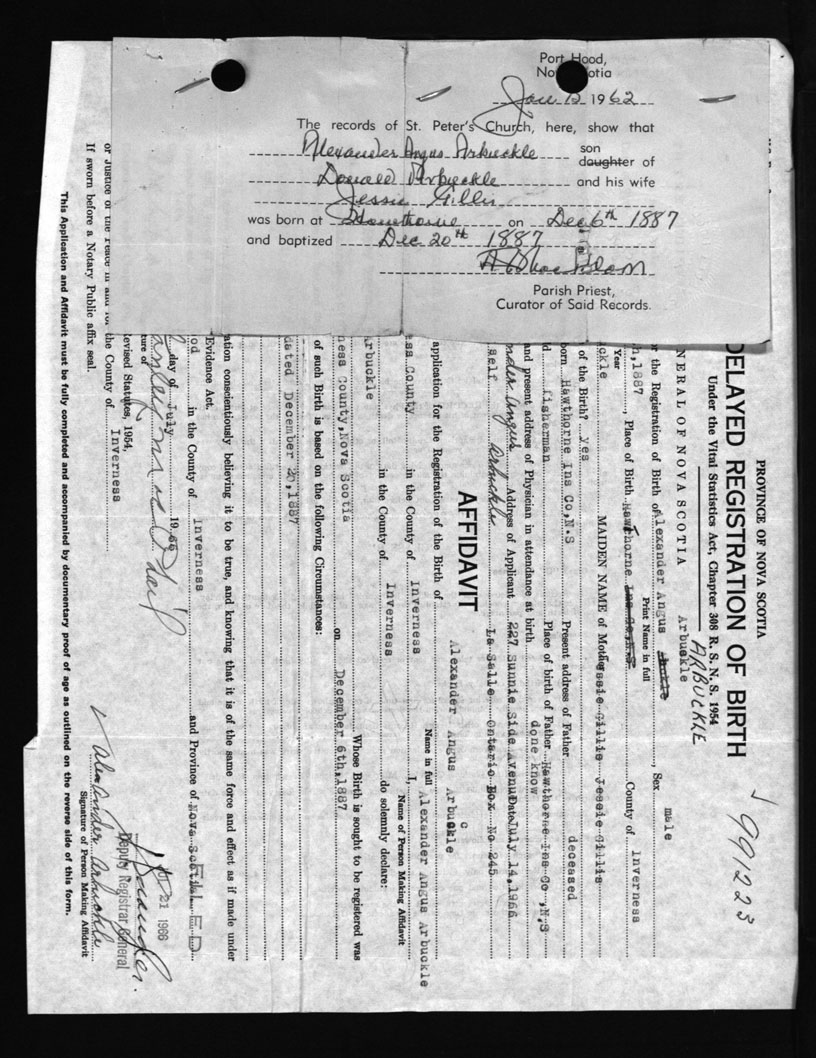 Port Hood,
Nova Scotia
Jan 12 1962
The records of St. Peter's Church, here, show that
Alexander Angus Arbuckle son
daughter of
Donald Arbuckle and his wife
Jessie Gillis
was born at Hawthorne on Dec 6th 1887
and baptized Dec 20th 1887
Parish Priest,
Curator of Said Records.
PROVINCE OF NOVA SCOTIA
DELAYED REGISTRATION OF BIRTH
991223
Under the Vital Statistics Act, Chapter 308 R. S. N. S. 1954
ARBUCKLE
NERAL OF NOVA SCOTIA
Arbuckle
r the Registration of Birth of Alexander Angus, Sex male
Print Name in full
h,1887, Place of Birth Hawthorne Ins Co, N.S County of Inverness
Year
ckle MAIDEN NAME of Mother Jessie Gillis Jessie Gillis
of the Birth? yes
born Hawthorne Ins Co,N.S Present address of Father deceased
d fisherman Place of birth of Father Hawthorne Ins Co ,N,S
and present address of Physician in attendance at birth done know
nder Angus Address of Applicant 227 Sunnie Side Avenue Date July 14,1966
self Arbuckle La Salle Ontario Box No 245
AFFIDAVIT
Alexander Angus Arbuckle
application for the Registration of the Birth of
Name in full
ss County in the County of Inverness I, Alexander Angus Arbuckle
Name of Person Making Affidavit
rbuckle in the County of Inverness do solemnly declare:
Whose Birth is sought to be registered was
ness County,Nova Scotia on December 6th,1887
of such Birth is based on the following Circumstances:
dated December 20,1887
ation conscientiously believing it to be true, and knowing that it is of the same force and effect as if made under
Evidence Act.
od in the County of Inverness and Province of Nova Scotia
SEALED
day of July 1966
ture of
21 1966
Deputy Registrar General
evised Statutes, 1954,
Alexander Arbuckle
Signature of Person Making Affidavit
the County of Inverness
or Justice of the Peace in and for
If sworn before a Notary Public affix seal.
This Application and Affidavit must be fully completed and accompanied by documentary proof of age as outlined on the reverse side of this form.